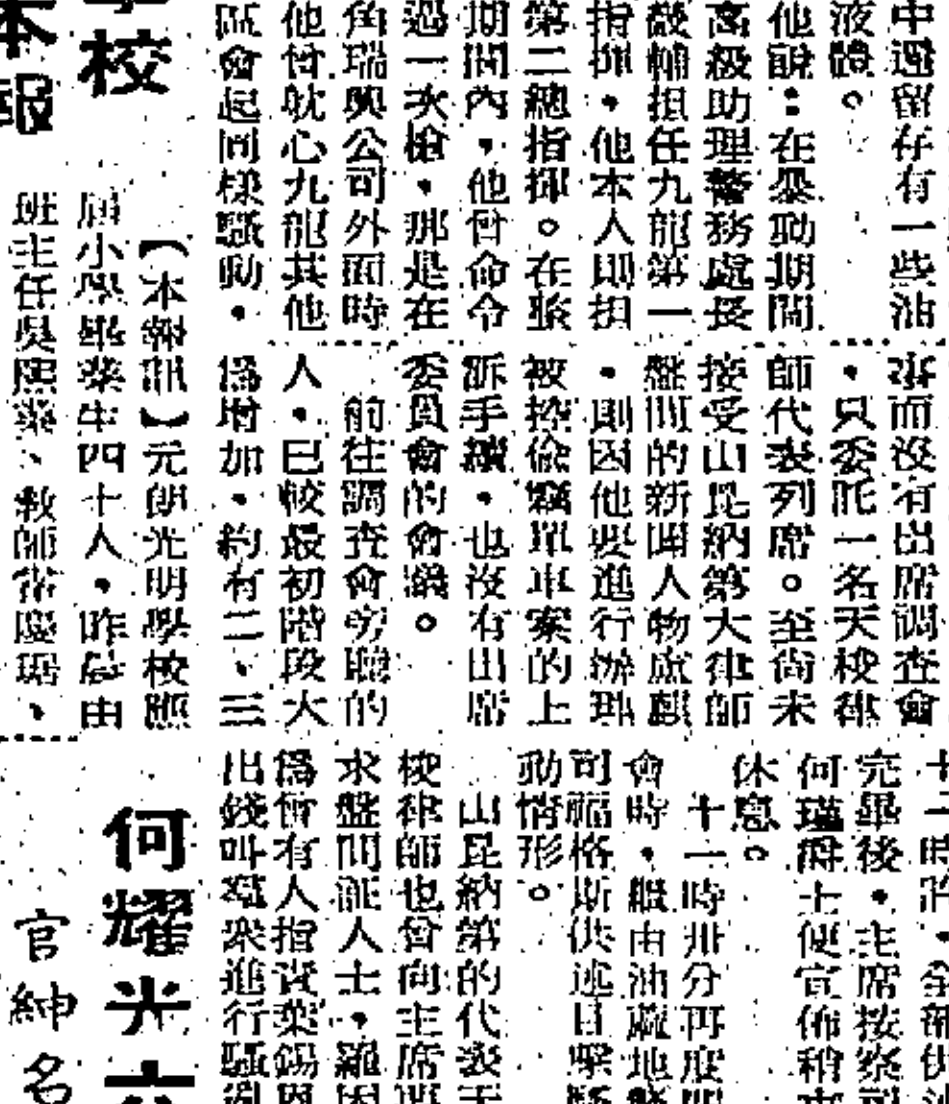 中遺留存有一些油
液體。
他說：在暴動期間
高級助理警務處長
畿輔担任九龍第一
指揮，他本人則担
第二總指揮。在騷
期間內，他曾命令
過一次槍，那是在
角瑞興公司外面時
他曾躭心九龍其他
區會起同樣騷動。
事而沒有出席調查會
，只委託一名天梭律
師代表列席。至尚未
接受山昆納第大律師
盤問的新聞人物盧麒
，則因他要進行辦理
被控偷竊單車案的上
訴手續，也沒有出席
委員會的會議。
前往調查會旁聽的
人，已較最初階段大
爲增加，約有二、三
十一時許，全部供
完畢後，主席按察司
何瑾爵士便宣佈稍
休息。
十一時卅分再度開
會時，繼由油蔴地警
司福格斯供述目擊騷
動情形。
山昆納第的代表天
梭律師也曾向主席要
求盤問証人士，羅因
爲曾有人指責葉錫恩
出錢叫羣衆進行騷亂
校
本報
【本報訊】元朗光明學校應
屆小學畢業生四十人，昨晨由
班主任吳熙棻、教師常慶琚、
何耀光
官紳名